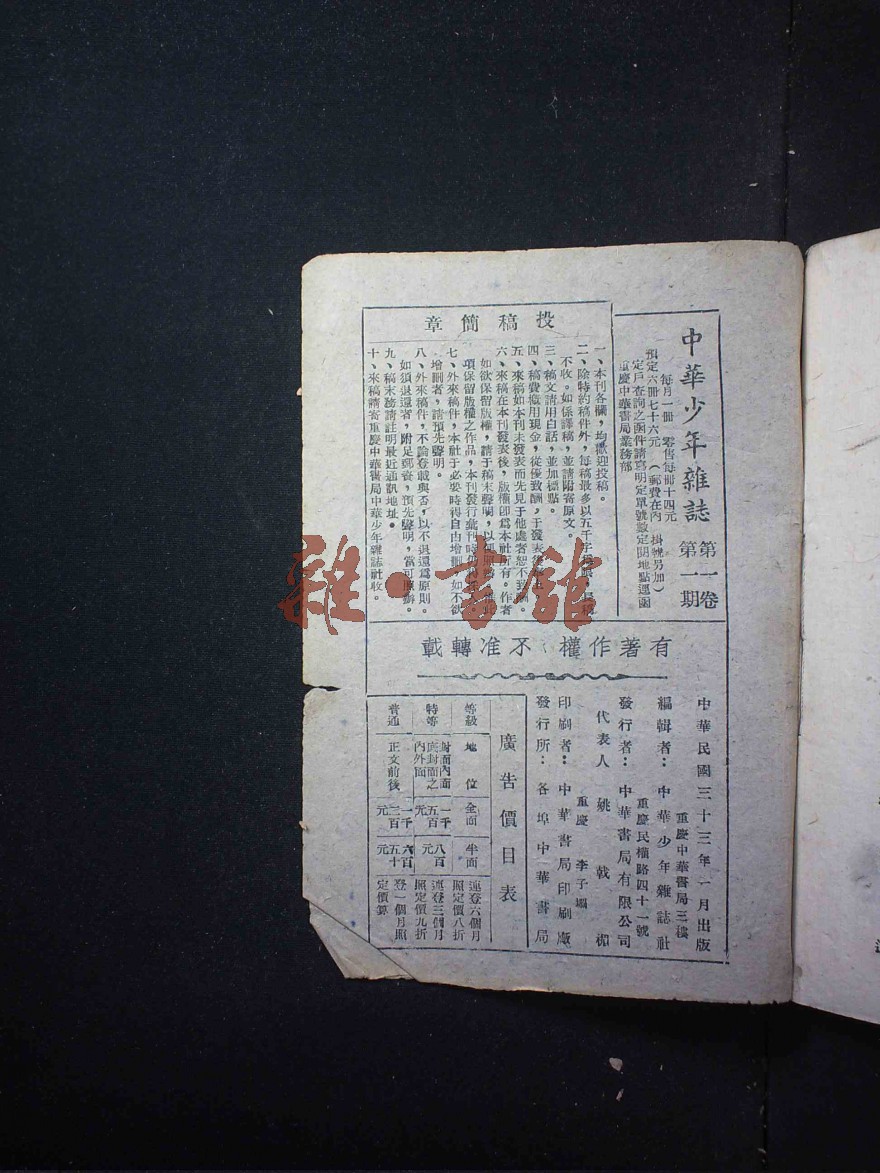 中華少年雜誌 第一卷 第一期
每月一冊 零售每冊十四元
預定六冊七十六元（郵費在內 掛號另加）
定戶查詢之函件請寫明定單號數定閱地點逕函
重慶中華書局業務部
投稿簡章
一、本刊各欄，均歡迎投稿。
二、除特約稿件外，每稿最多以五千字
不收。如係譯稿，並請附寄原文。
三、稿文請用白話，並加標點。
四、稿費概用現金，從優致酬，于發表後
五、來稿如本刊未發表而先見于他處者恕不
六、來稿在本刊發表後，版權卽爲本社所有。作者
如欲保留版權，請于稿末聲明，以便
項保留版權之作品，本刊發行彙刊時
七、外來稿件，本社于必要時得自由增刪，如不欲
增刪者，請預先聲明。
八、外來稿件，不論登載與否，以不退還爲原則。
如須退還者，附足郵費，預先聲明，當可照辦。
九、稿末務請註明最近通訊地址。
十、來稿請寄重慶中華書局中華少年雜誌社收。
有著作權 不准轉載
中華民國三十三年一月出版
重慶中華書局三樓
編輯者：中華少年雜誌社
重慶民權路四十一號
發行者：中華書局有限公司
代表人 姚戟楣
重慶 李子壩
印刷者：中華書局印刷廠
發行所：各埠中華書局
廣告價目表
等級 地位 全面 半面
特等 封面內面底封面之內外面 一千五百元 八百元
普通 正文前後 一千二百元 六百五十元
連登六個月照定價八折
連登三個月照定價九折
登一個月照定價算
雜·書館